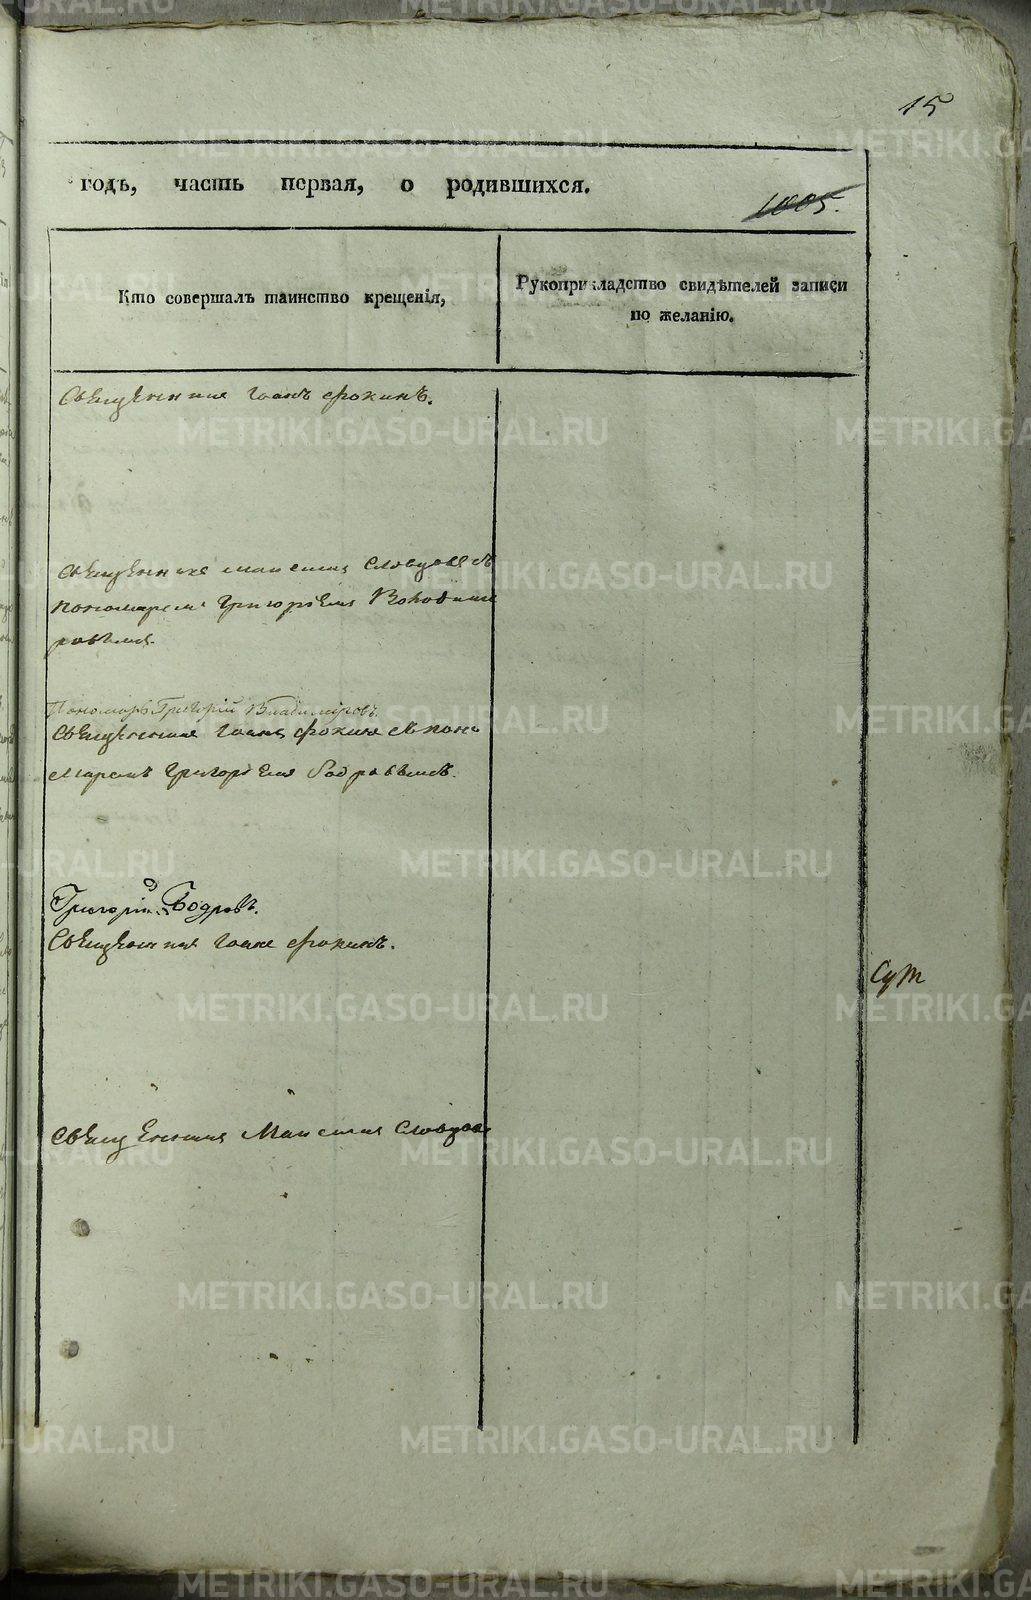 15
годъ, часть первая, о родившихся.
1005.
Кто совершалъ таинство крещенія,
Рукоприкладство свидѣтелей записи
по желанію.
Священник Іоанъ Фокинъ.
Священнике Максима Словцовъ съ
пономаремъ Григоріемъ
Пономарь Григорій Владиміровъ.
Священник Іоанн Фокине съ поно
маремъ Григоріем Бодровымъ.
Григорій Бодровъ.
Священник Іоане Фокинъ.
Священник Максима Словцов